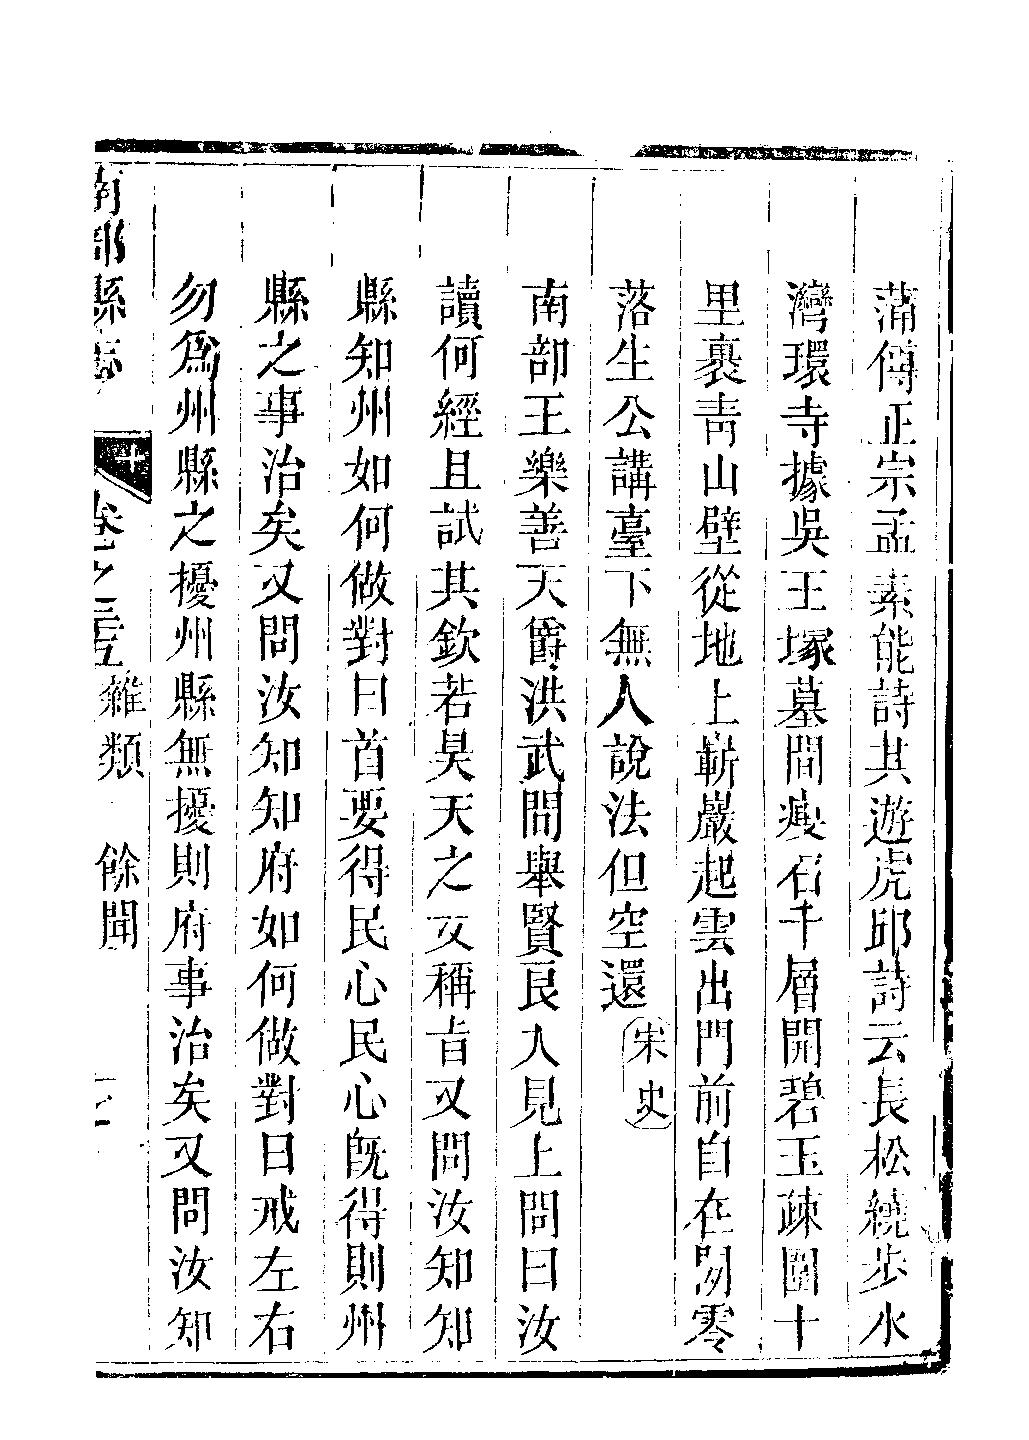 蒲傳正宗孟素能詩其遊虎邱詩云長松繞步水
灣環寺據吳王塚墓間瘦石千層開碧玉疎園十
里裹靑山壁從地上嶄巖起雲出門前自在閒零
落生公講臺下無人說法但空還
宋史
南部王樂善天爵洪武間舉賢良入見上問曰汝
讀何經且試其欽若昊天之文稱旨又問汝知知
縣知州如何做對曰首要得民心民心旣得則州
縣之事治矣又問汝知知府如何做對曰戒左右
勿爲州縣之擾州縣無擾則府事治矣又問汝知
南部縣志
卷之二五
雜類
餘聞